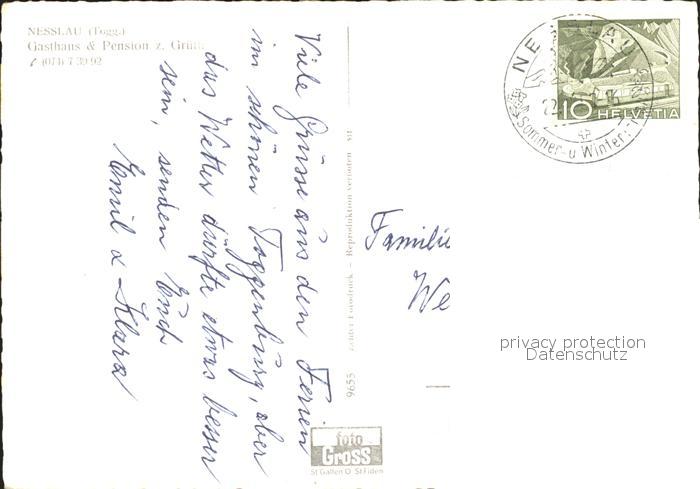 NESSLAU (Togg.)
Gasthaus & Pension z. Grütl
(074) 7 39 92
Viele Grüsse aus den Ferien
im schönen Toggenburg, aber
das Wetter dürfte etwas besser
sein, senden Euch
Emil & Klara
9655 echter Fotodruck – Reproduktion verboten
foto
Gross
St Gallen O St Fiden
NESSLAU
22.
Sommer- u Winter
10 HELVETIA
Familie
We
privacy protection
Datenschutz